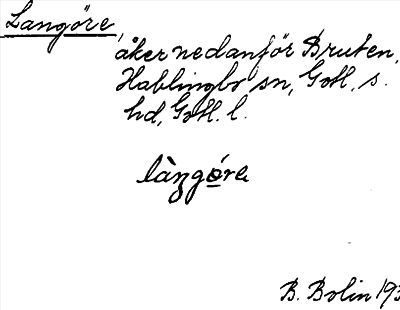 Langöre,
åker nedanför Bruten,
Hablingbo sn, Gotl. s.
hd, Gotl. l.
làŋgǫ́re
B. Bolin 193